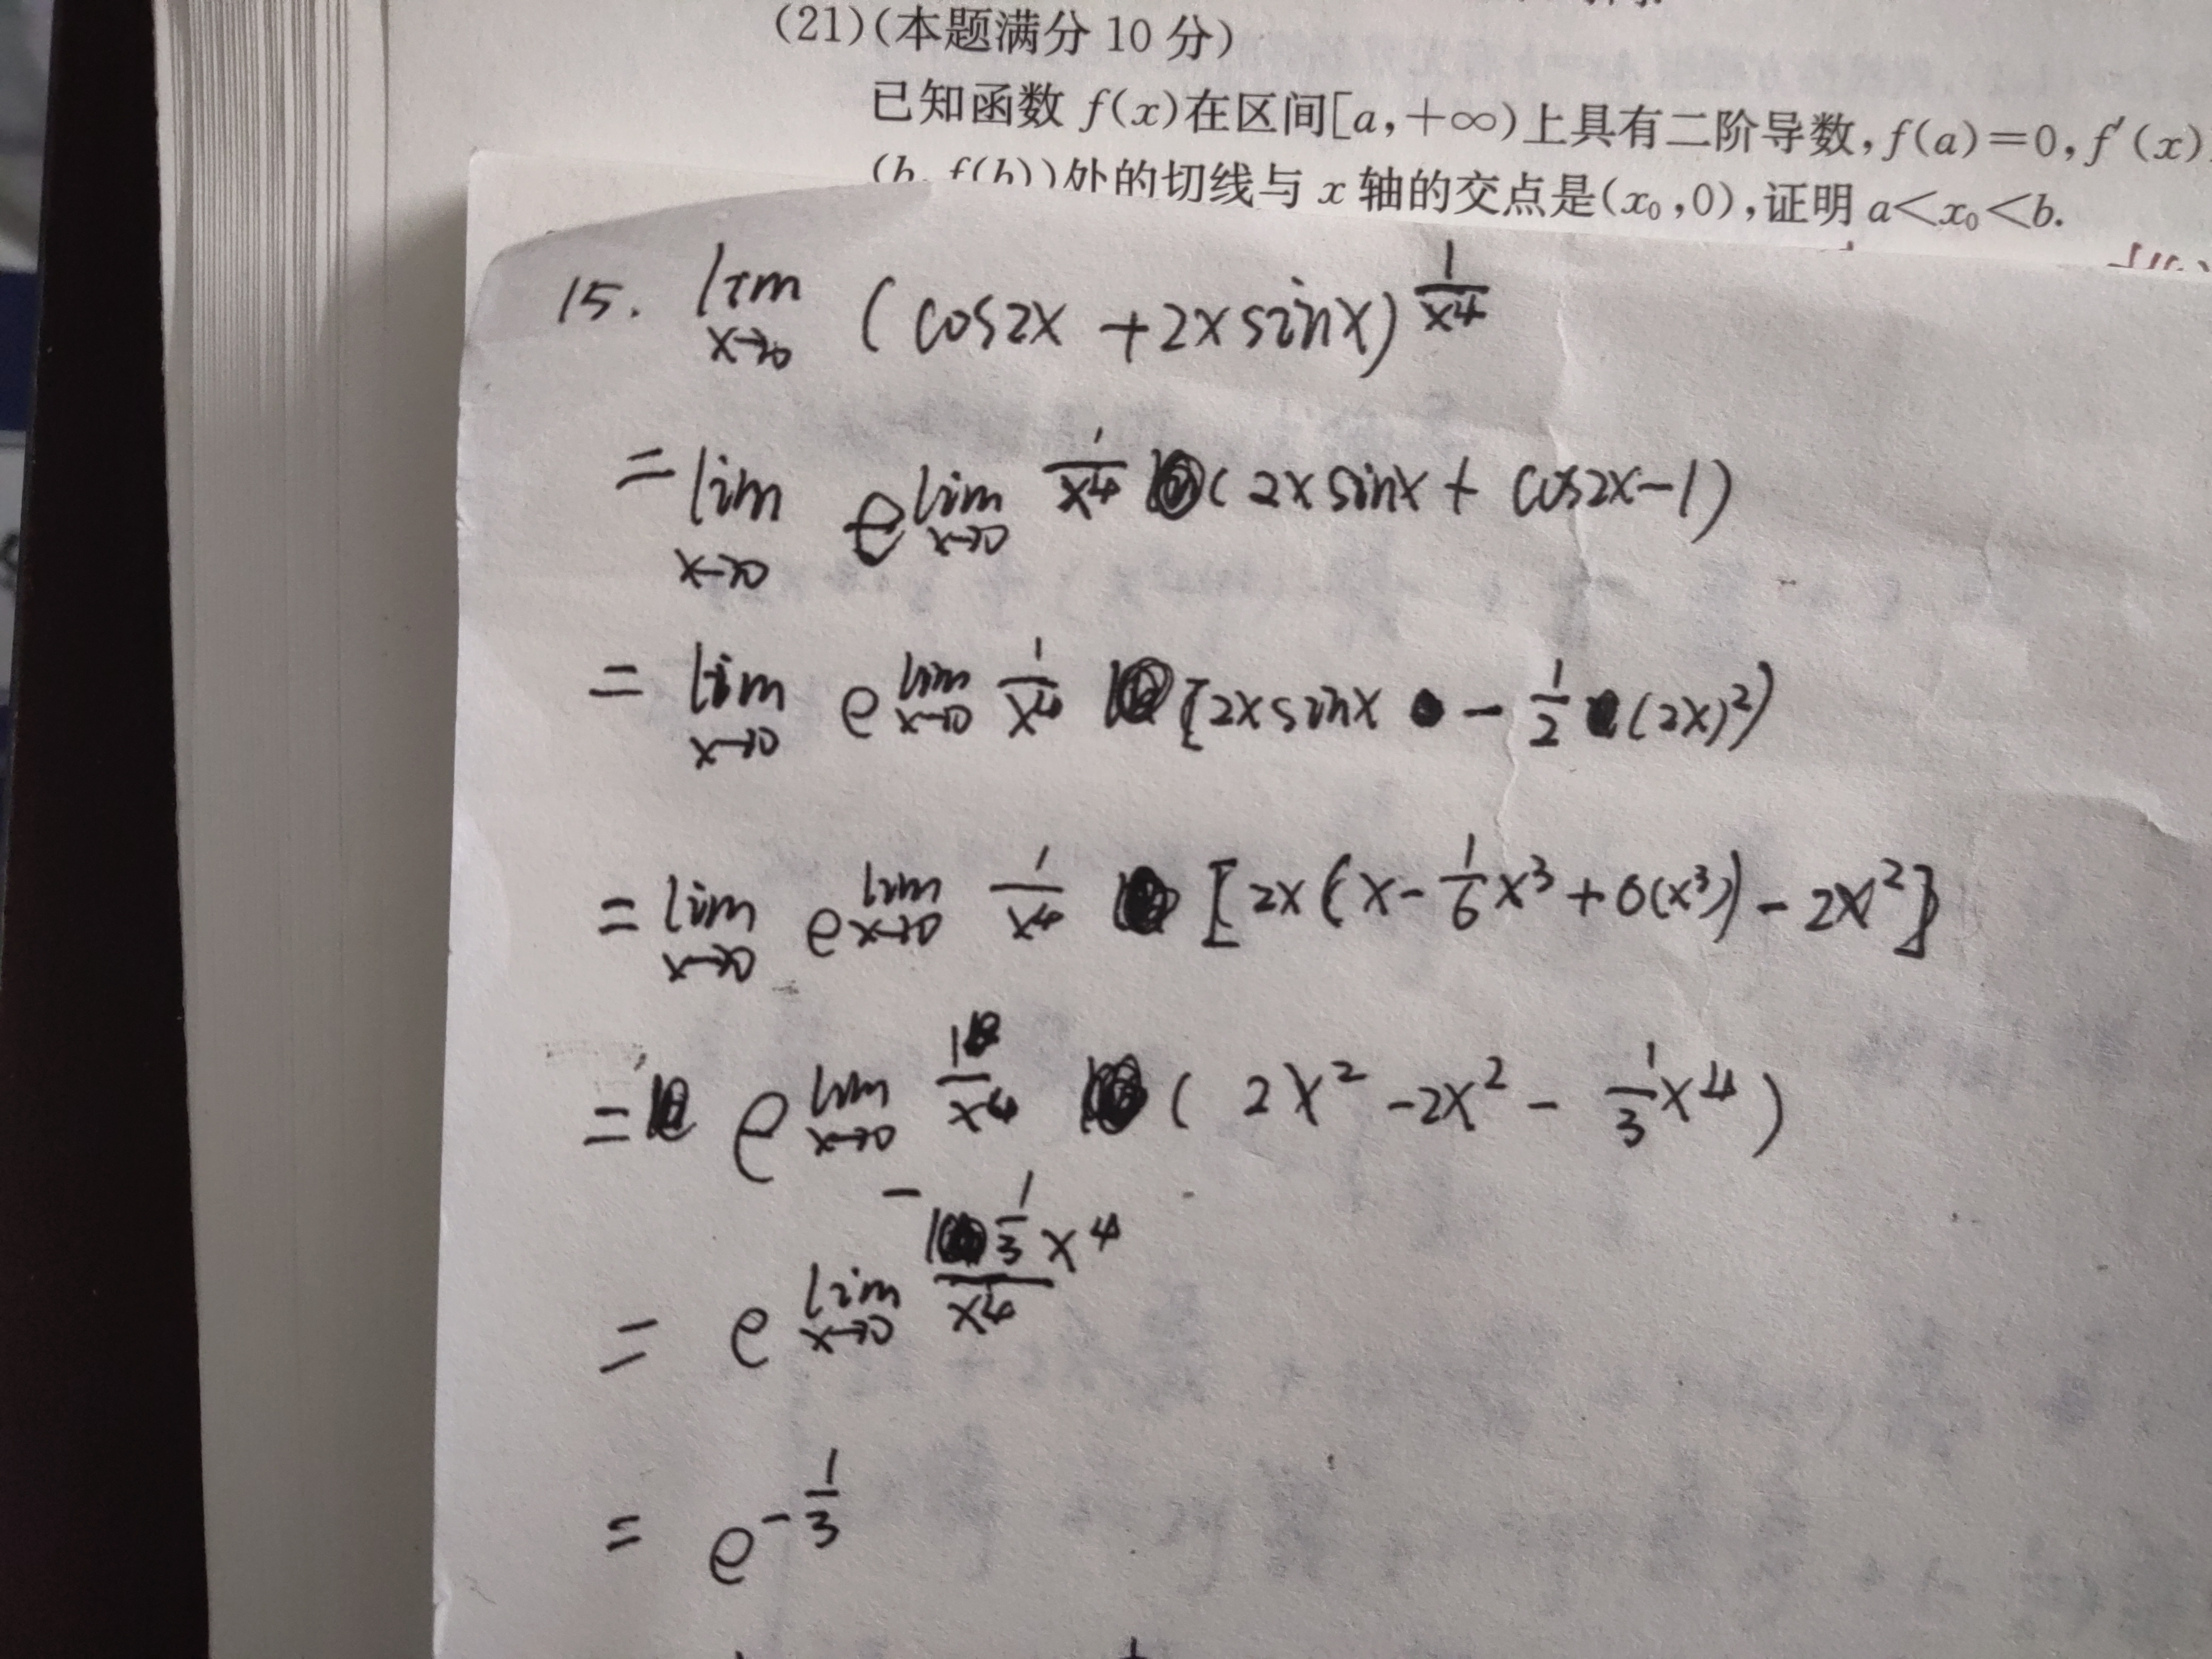 (21)(本题满分 10 分)
已知函数 f(x)在区间[a,+∞)上具有二阶导数,f(a)=0,f′(x)
(b,f(b))处的切线与 x 轴的交点是(x₀,0),证明 a<x₀<b.
15. lim_{x→0} (cos2x + 2x sinx)^{1/x⁴}
= lim_{x→0} e^{lim_{x→0} 1/x⁴ (2x sinx + cos2x - 1)}
= lim_{x→0} e^{lim_{x→0} 1/x⁴ [2x sinx - 1/2 (2x)²)}
= lim_{x→0} e^{lim_{x→0} 1/x⁴ [2x(x - 1/6 x³ + o(x³)) - 2x²]}
= e^{lim_{x→0} 1/x⁴ (2x² - 2x² - 1/3 x⁴)}
= e^{lim_{x→0} (-1/3 x⁴)/x⁴}
= e^{-1/3}